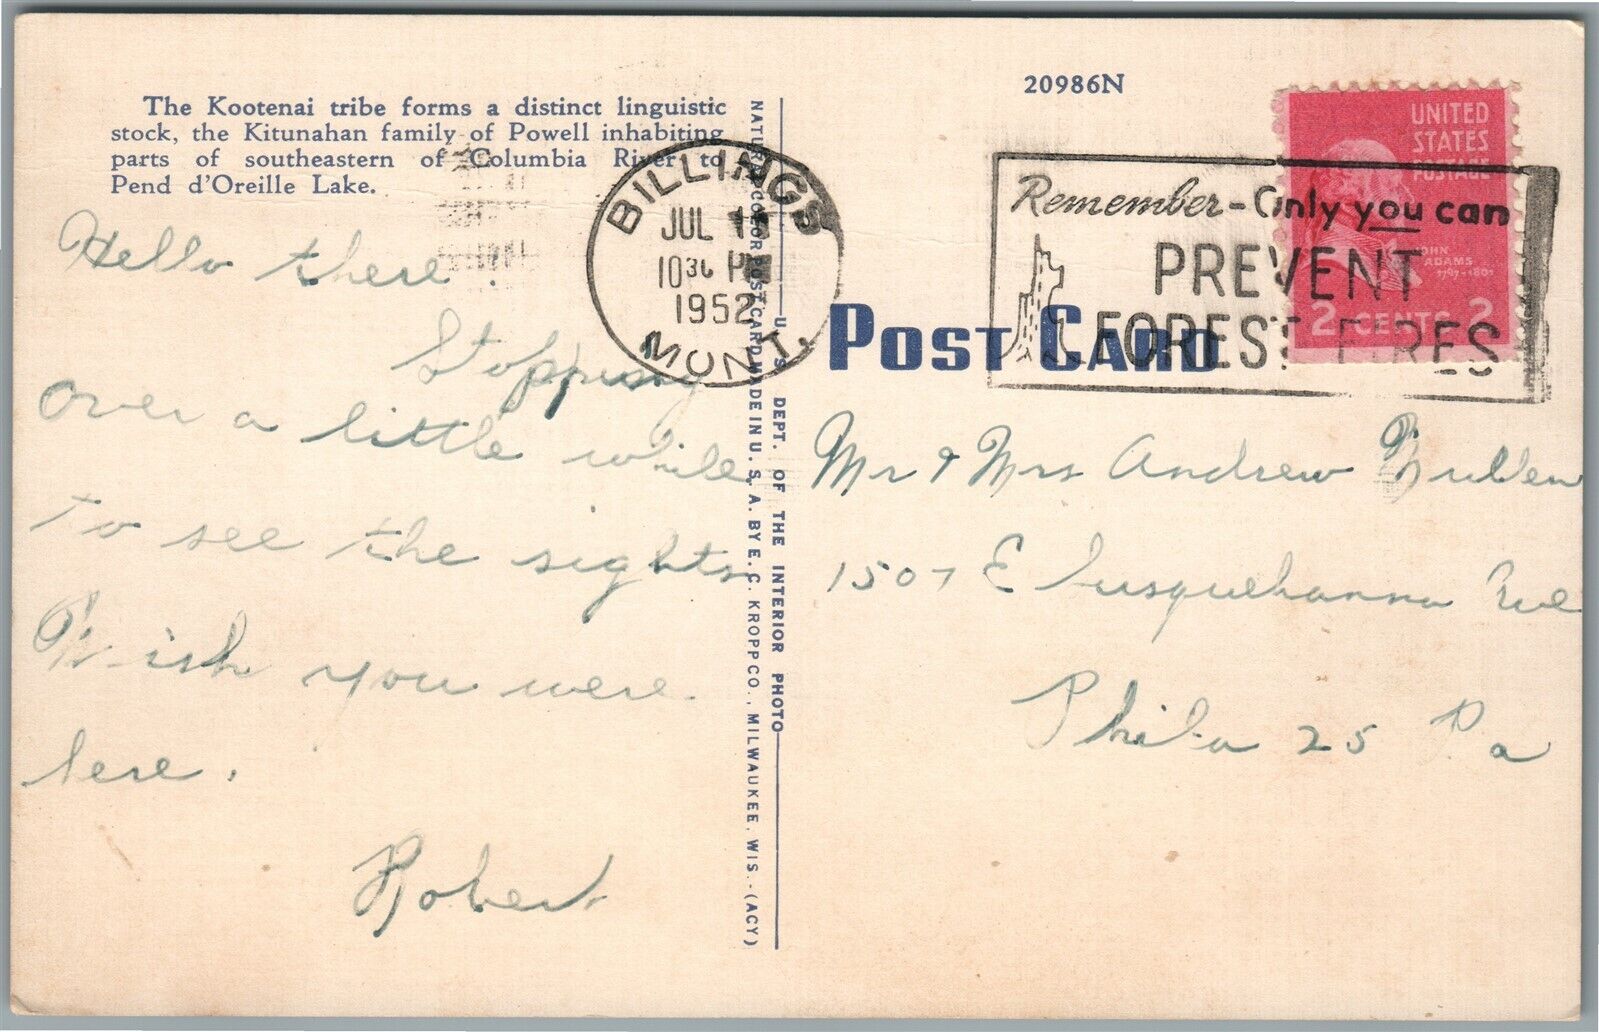 20986N
The Kootenai tribe forms a distinct linguistic
stock, the Kitunahan family of Powell inhabiting
parts of southeastern of Columbia River to
Pend d'Oreille Lake.
UNITED
STATES
POSTAGE
JOHN
ADAMS
1797-1801
2 CENTS 2
BILLINGS
JUL
1952
MONT.
Remember - Only you can
PREVENT
FOREST FIRES
POST CARD
Hello there.
Stopping
over a little while
to see the sights
Wish you were
here.
Robert
NATURAL COLOR POST CARD MADE IN U. S. A. BY E. C. KROPP CO., MILWAUKEE, WIS. - (ACY)
U. S. DEPT. OF THE INTERIOR PHOTO
Mr & Mrs Andrew
1507 E Susquehanna Ave
Phila 25 Pa